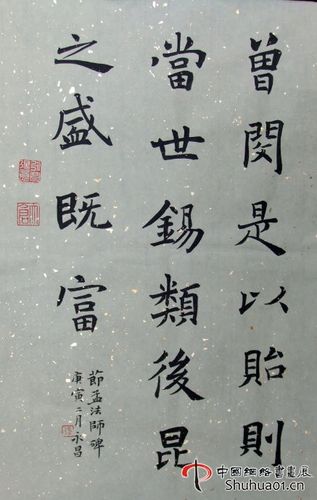 曾閔是以貽則
當世錫類後昆
之盛既富
節孟法師碑
庚寅二月永昌
中國網絡書畫展
Shuhua01.cn